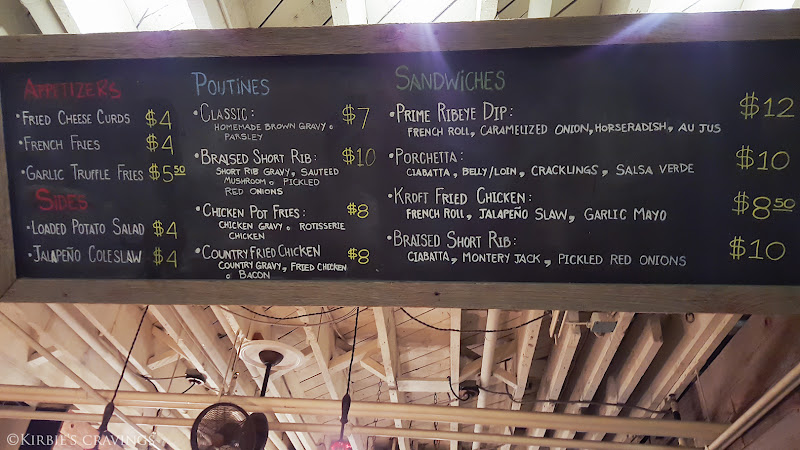 APPETIZERS
•FRIED CHEESE CURDS $4
•FRENCH FRIES $4
•GARLIC TRUFFLE FRIES $5.50
SIDES
•LOADED POTATO SALAD $4
•JALAPEÑO COLESLAW $4
POUTINES
•CLASSIC: $7
HOMEMADE BROWN GRAVY &
PARSLEY
•BRAISED SHORT RIB: $10
SHORT RIB GRAVY, SAUTEED
MUSHROOM & PICKLED
RED ONIONS
•CHICKEN POT FRIES: $8
CHICKEN GRAVY & ROTISSERIE
CHICKEN
•COUNTRY FRIED CHICKEN $8
COUNTRY GRAVY, FRIED CHICKEN
& BACON
SANDWICHES
•PRIME RIBEYE DIP: $12
FRENCH ROLL, CARAMELIZED ONION, HORSERADISH, AU JUS
•PORCHETTA: $10
CIABATTA, BELLY/LOIN, CRACKLINGS, SALSA VERDE
•KROFT FRIED CHICKEN: $8.50
FRENCH ROLL, JALAPEÑO SLAW, GARLIC MAYO
•BRAISED SHORT RIB: $10
CIABATTA, MONTERY JACK, PICKLED RED ONIONS
©KIRBIE'S CRAVINGS